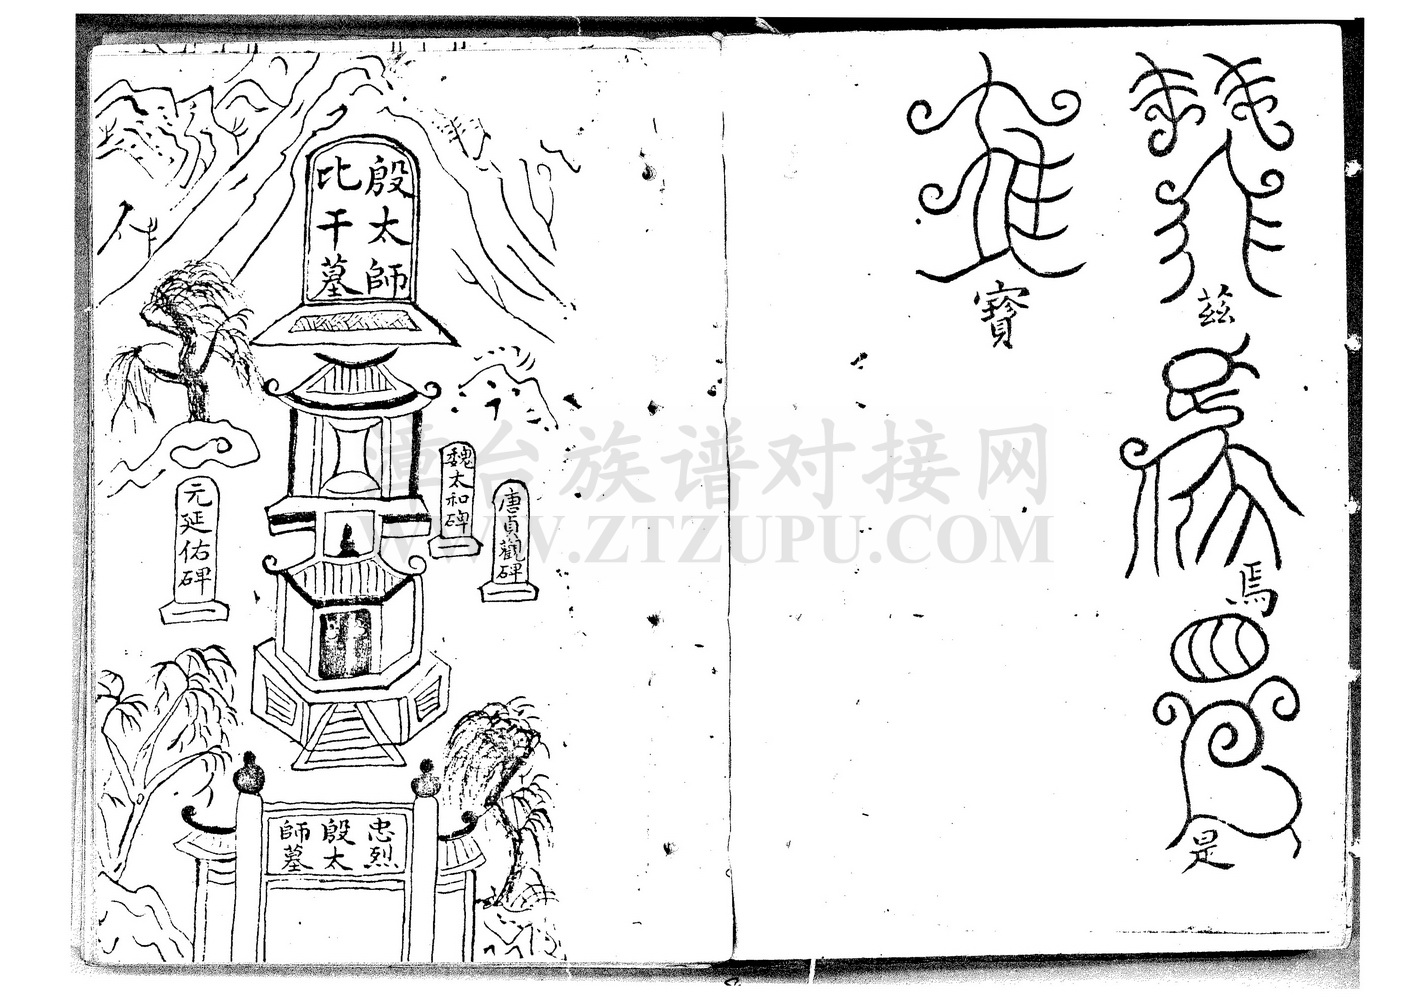 兹
焉
是
寳
殷太師
比干墓
魏太和碑
唐貞觀碑
元延佑碑
忠烈
殷太
師墓
台族谱对接网
WWW.ZTZUPU.COM